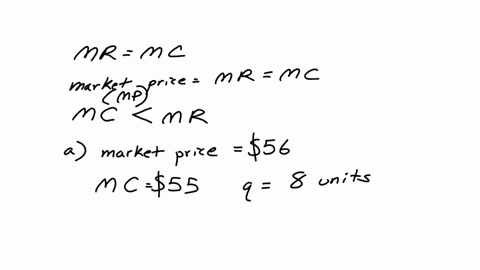 MR = MC
market price = MR = MC
(MP)
MC < MR
a) market price = $56
MC = $55 q = 8 units